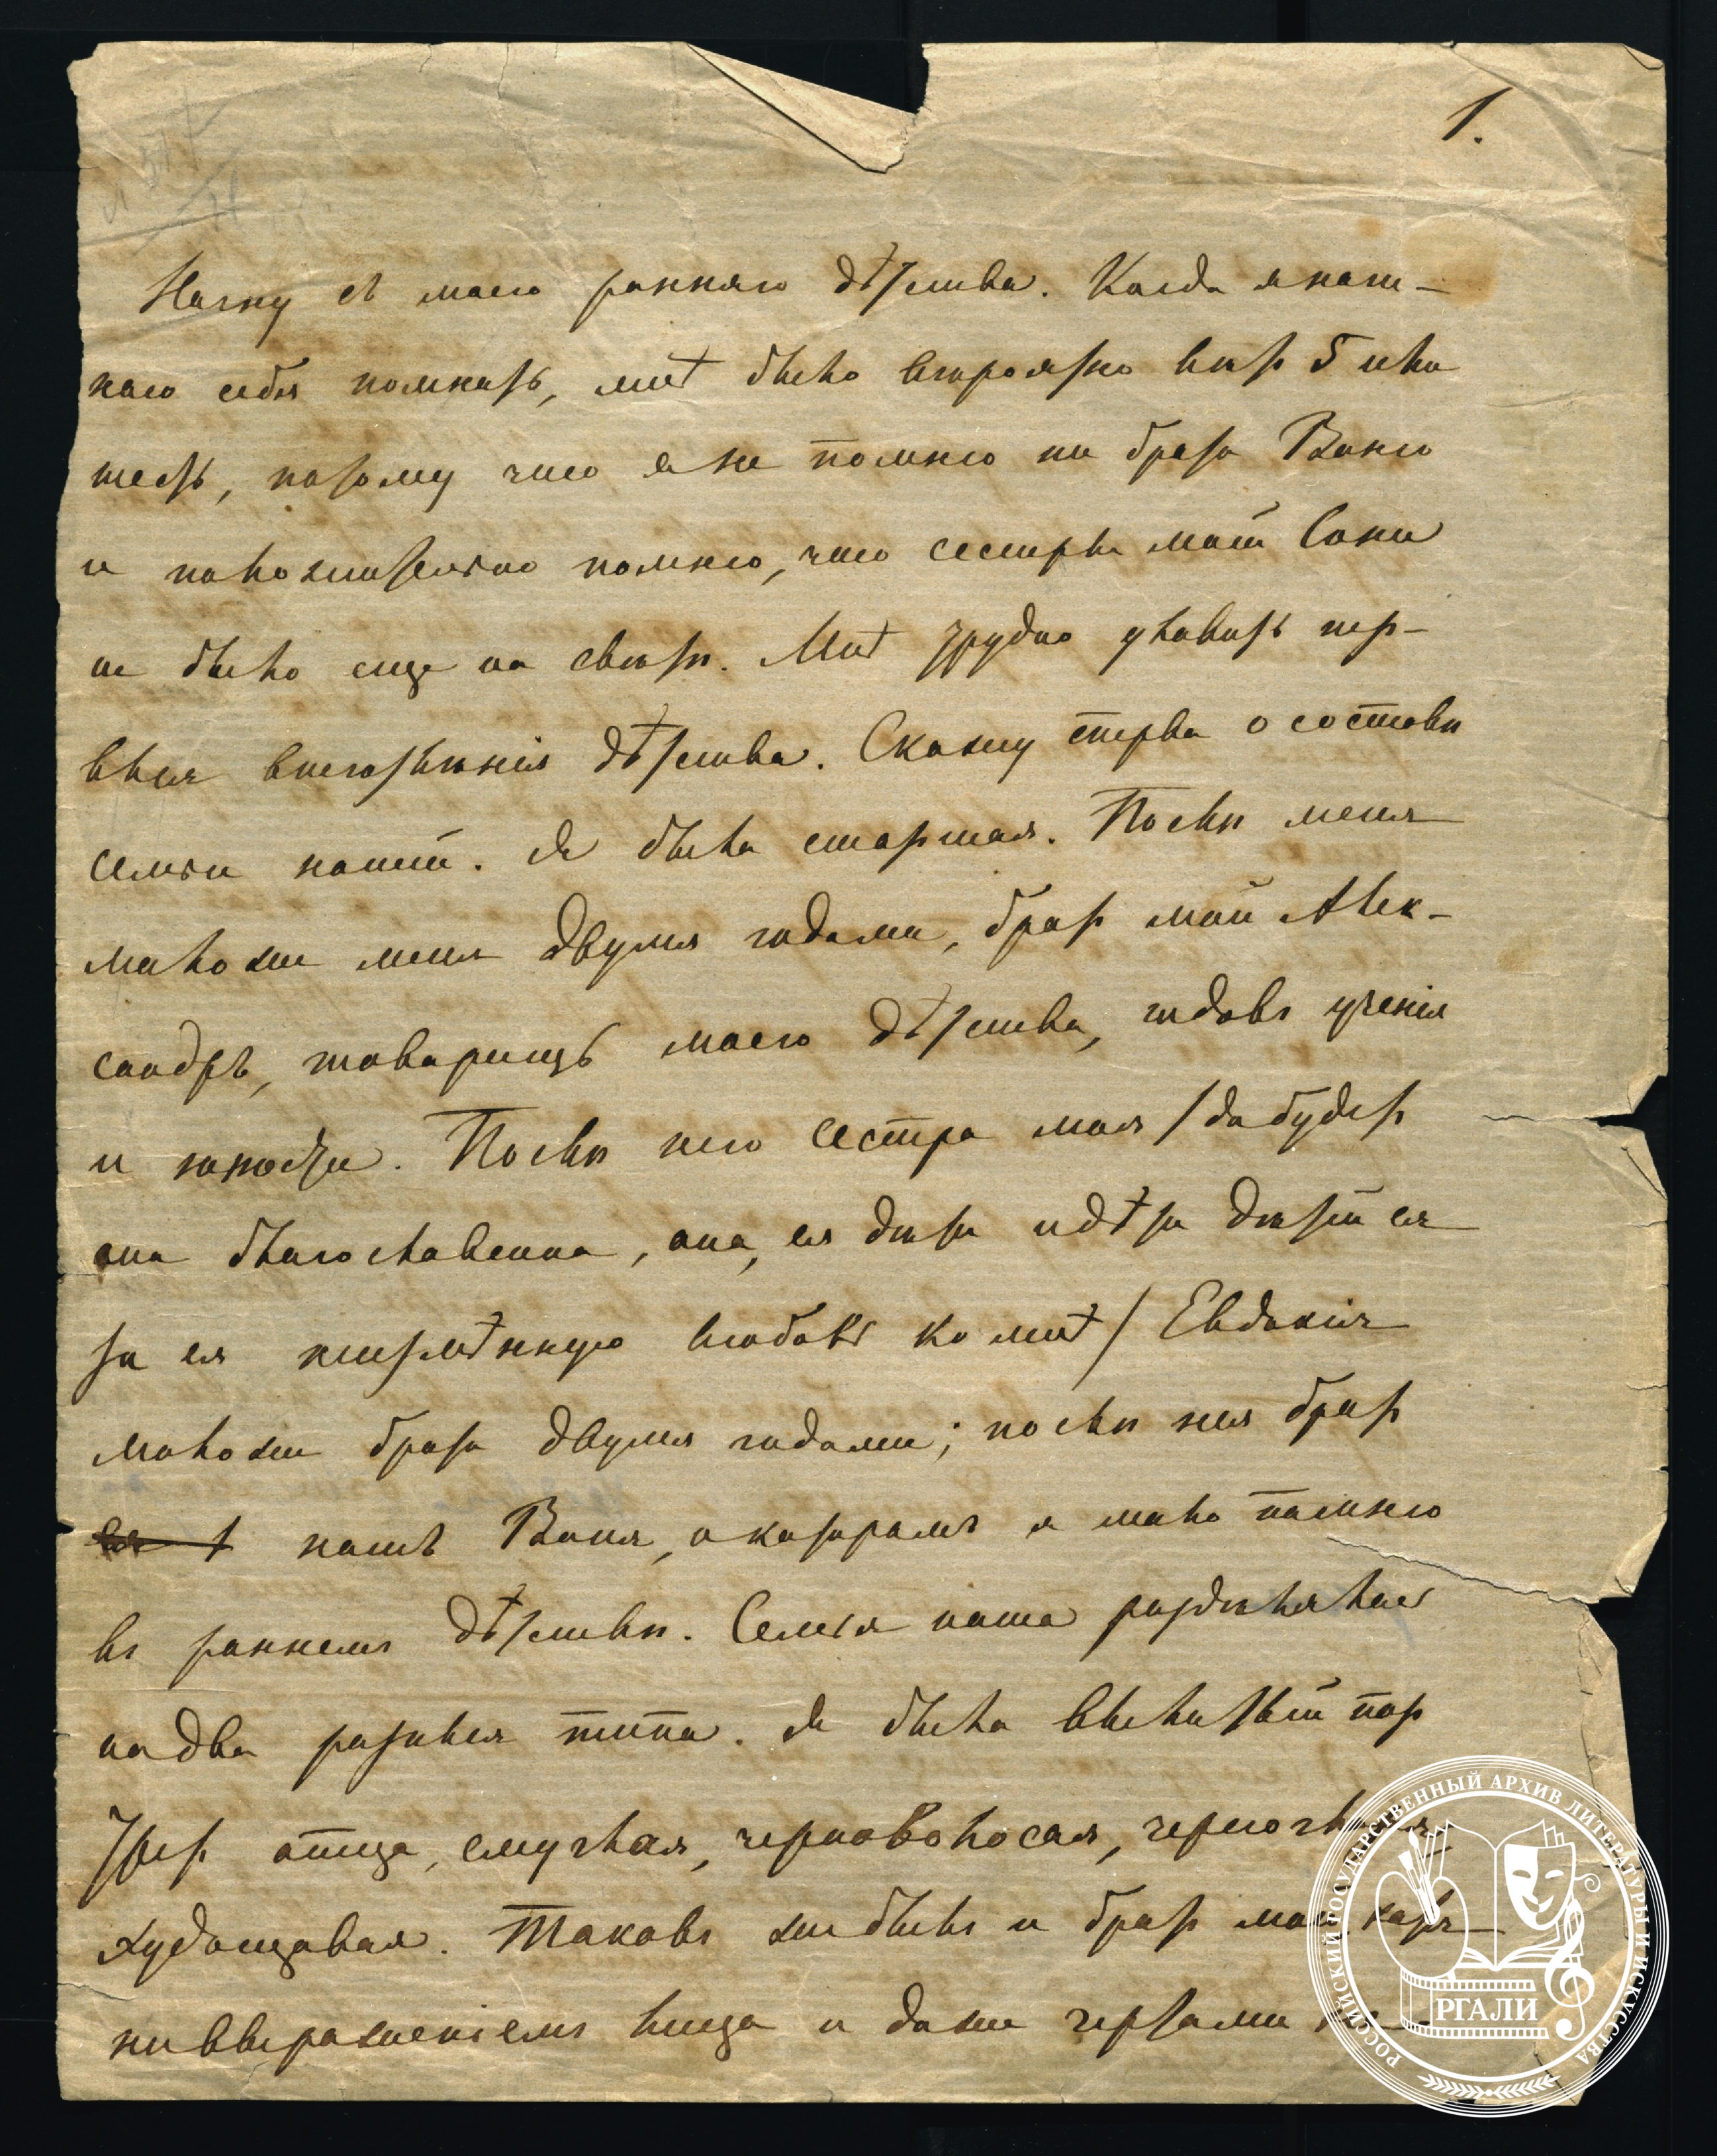 1.
Начну съ моего ранняго дѣтства. Когда я начи-
наю себя помнить, мнѣ было вѣроятно лѣтъ 5 или
шесть, потому что я не помню ни брата Ваню
и положительно помню, что сестры моей Сони
не было еще на свѣтѣ. Мнѣ трудно уловить пер-
выя впечатлѣнія дѣтства. Скажу сперва о составѣ
семьи нашей. Я была старшая. Послѣ меня
моложе меня двумя годами, братъ мой Алек-
сандръ, товарищъ моего дѣтства, годовъ ученія
и юности. Послѣ него сестра моя /да будетъ
она благословенна, она, ея дѣти и дѣти дѣтей ея
за ея неизмѣнную любовь ко мнѣ/ Евдокія
моложе брата двумя годами; послѣ нея братъ
нашъ Ваня, о которомъ я мало помню
въ раннемъ дѣтствѣ. Семья наша раздѣлялась
на два разныя типа. Я была вылитый пор
третъ отца, смуглая, черноволосая, черноглазая,
худощавая. Таковъ же былъ и братъ мой
ни выраженіемъ лица и даже чертами
РОССИЙСКИЙ ГОСУДАРСТВЕННЫЙ АРХИВ ЛИТЕРАТУРЫ И ИСКУССТВА
РГАЛИ